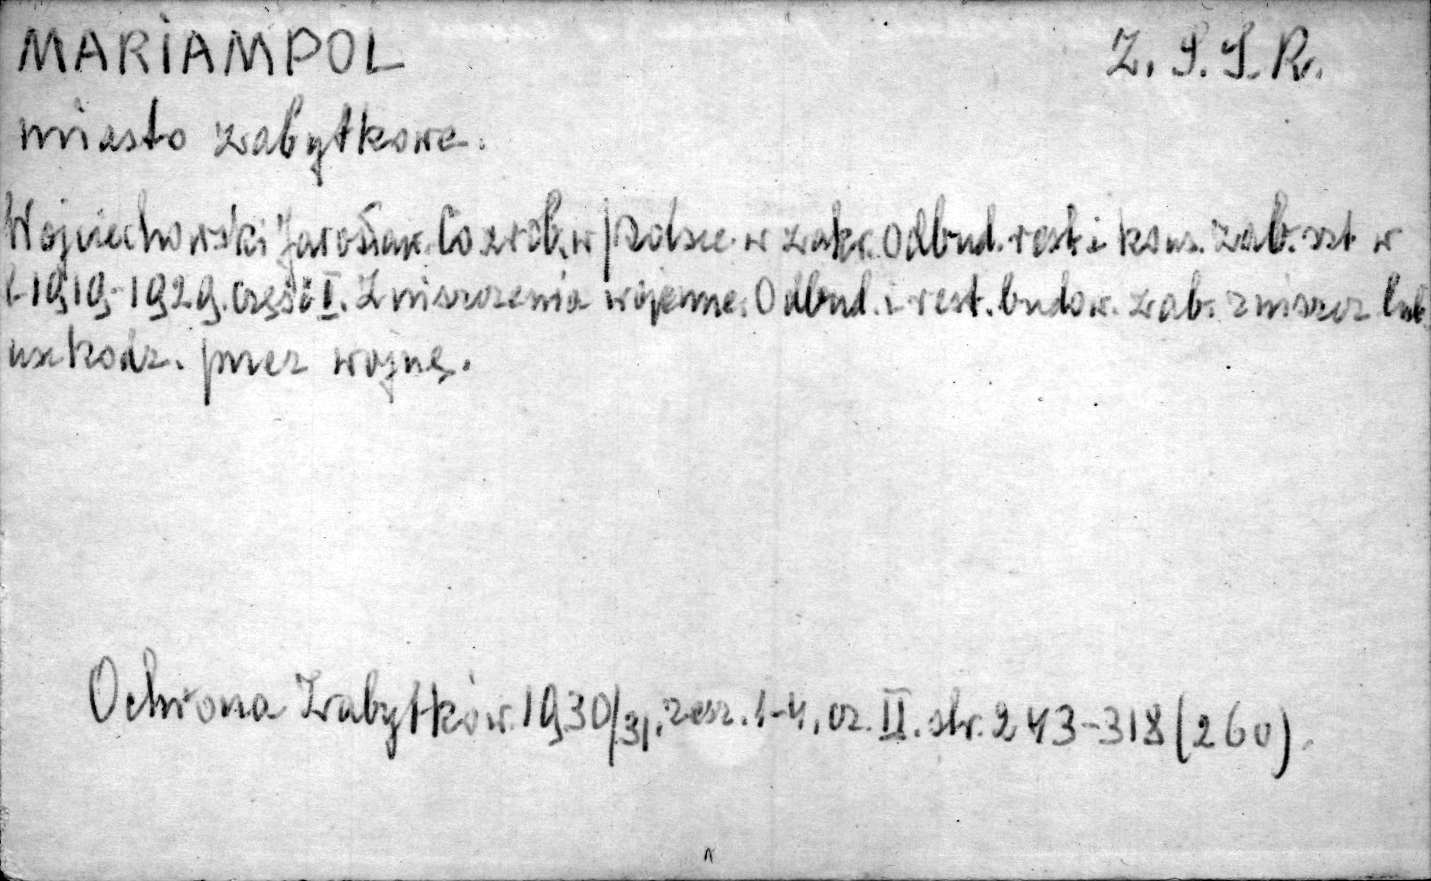 MARIAMPOL Z.S.S.R.
miasto zabytkowe.
Wojciechowski Jarosław. Co zrob. w Polsce w zakr. Odbud. rest. i kons. zab. szt. w
l. 1919-1929. Część I. Zniszczenia wojenne. Odbud. i rest. budow. zab. zniszcz lub
uszkodz. przez wojnę.
Ochrona Zabytków. 1930/31. zesz. 1-4. cz. II. str. 243-318 (260).